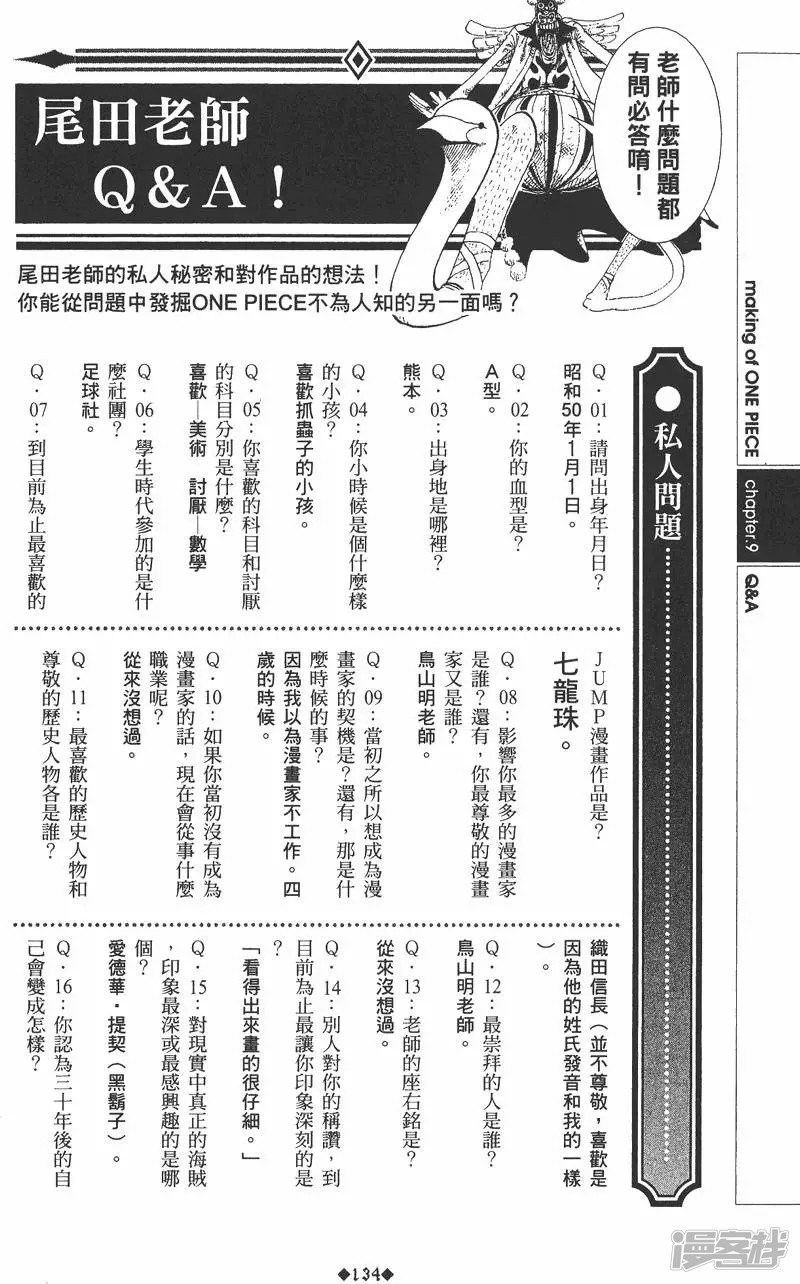 老師什麼問題都
有問必答唷！
尾田老師
Q&A！
尾田老師的私人秘密和對作品的想法！
你能從問題中發掘ONE PIECE不為人知的另一面嗎？
making of ONE PIECE
chapter.9
Q&A
●私人問題
Q．01：請問出身年月日？
昭和50年1月1日。
Q．02：你的血型是？
A型。
Q．03：出身地是哪裡？
熊本。
Q．04：你小時候是個什麼樣
的小孩？
喜歡抓蟲子的小孩。
Q．05：你喜歡的科目和討厭
的科目分別是什麼？
喜歡—美術　討厭—數學
Q．06：學生時代參加的是什
麼社團？
足球社。
Q．07：到目前為止最喜歡的
JUMP漫畫作品是？
七龍珠。
Q．08：影響你最多的漫畫家
是誰？還有，你最尊敬的漫畫
家又是誰？
鳥山明老師。
Q．09：當初之所以想成為漫
畫家的契機是？還有，那是什
麼時候的事？
因為我以為漫畫家不工作。四
歲的時候。
Q．10：如果你當初沒有成為
漫畫家的話，現在會從事什麼
職業呢？
從來沒想過。
Q．11：最喜歡的歷史人物和
尊敬的歷史人物各是誰？
織田信長（並不尊敬，喜歡是
因為他的姓氏發音和我的一樣
）。
Q．12：最崇拜的人是誰？
鳥山明老師。
Q．13：老師的座右銘是？
從來沒想過。
Q．14：別人對你的稱讚，到
目前為止最讓你印象深刻的是
？
「看得出來畫的很仔細。」
Q．15：對現實中真正的海賊
，印象最深或最感興趣的是哪
個？
愛德華·提契（黑鬍子）。
Q．16：你認為三十年後的自
己會變成怎樣？
◆134◆
漫客栈